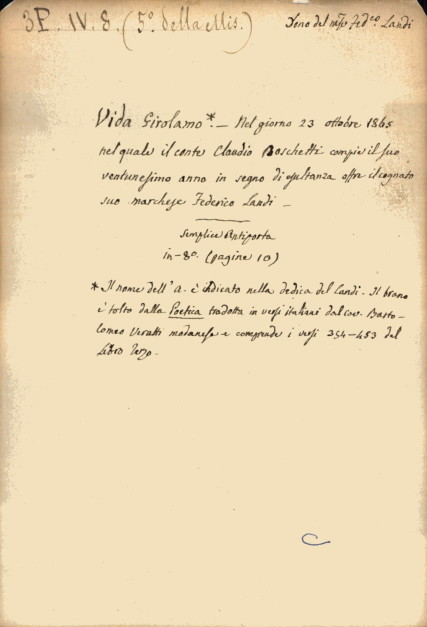 3P. IV. 8. (5º. della Mis.)
Dono del mse Fedco Landi
Vida Girolamo*. — Nel giorno 23 ottobre 1865
nel quale il conte Claudio Boschetti compie il suo
ventunesimo anno in segno di esultanza offre il cognato
suo marchese Federico Landi —
Semplice Antiporta
in-8º. (pagine 10)
* Il nome dell'a. è indicato nella dedica del Landi. Il brano
è tolto dalla Poetica tradotta in versi italiani dal cav. Barto-
lomeo Veratti modanese e comprende i versi 354-453 del
Libro terzo.